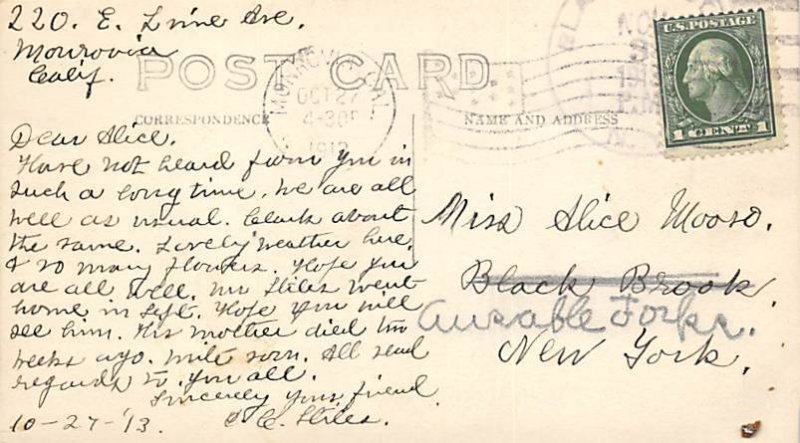 220. E. Lime Ave.
Monrovia
Calif.
POST CARD
MONROVIA, CAL.
OCT 27
4-30P
1913
NOV
U.S. POSTAGE
1 CENT 1
CORRESPONDENCE
NAME AND ADDRESS
Dear Alice.
Have not heard from you in
such a long time. We are all
well as usual. Clark about
the same. Lovely weather here,
& so many flowers. Hope you
are all well. Mr Stiles went
home in Sept. Hope you will
see him. His mother died two
weeks ago. Write soon. All send
regards to you all.
Sincerely your friend
C. Stiles.
10-27-'13.
Miss Alice Mooso.
Black Brook
Ausable Forks.
New York.